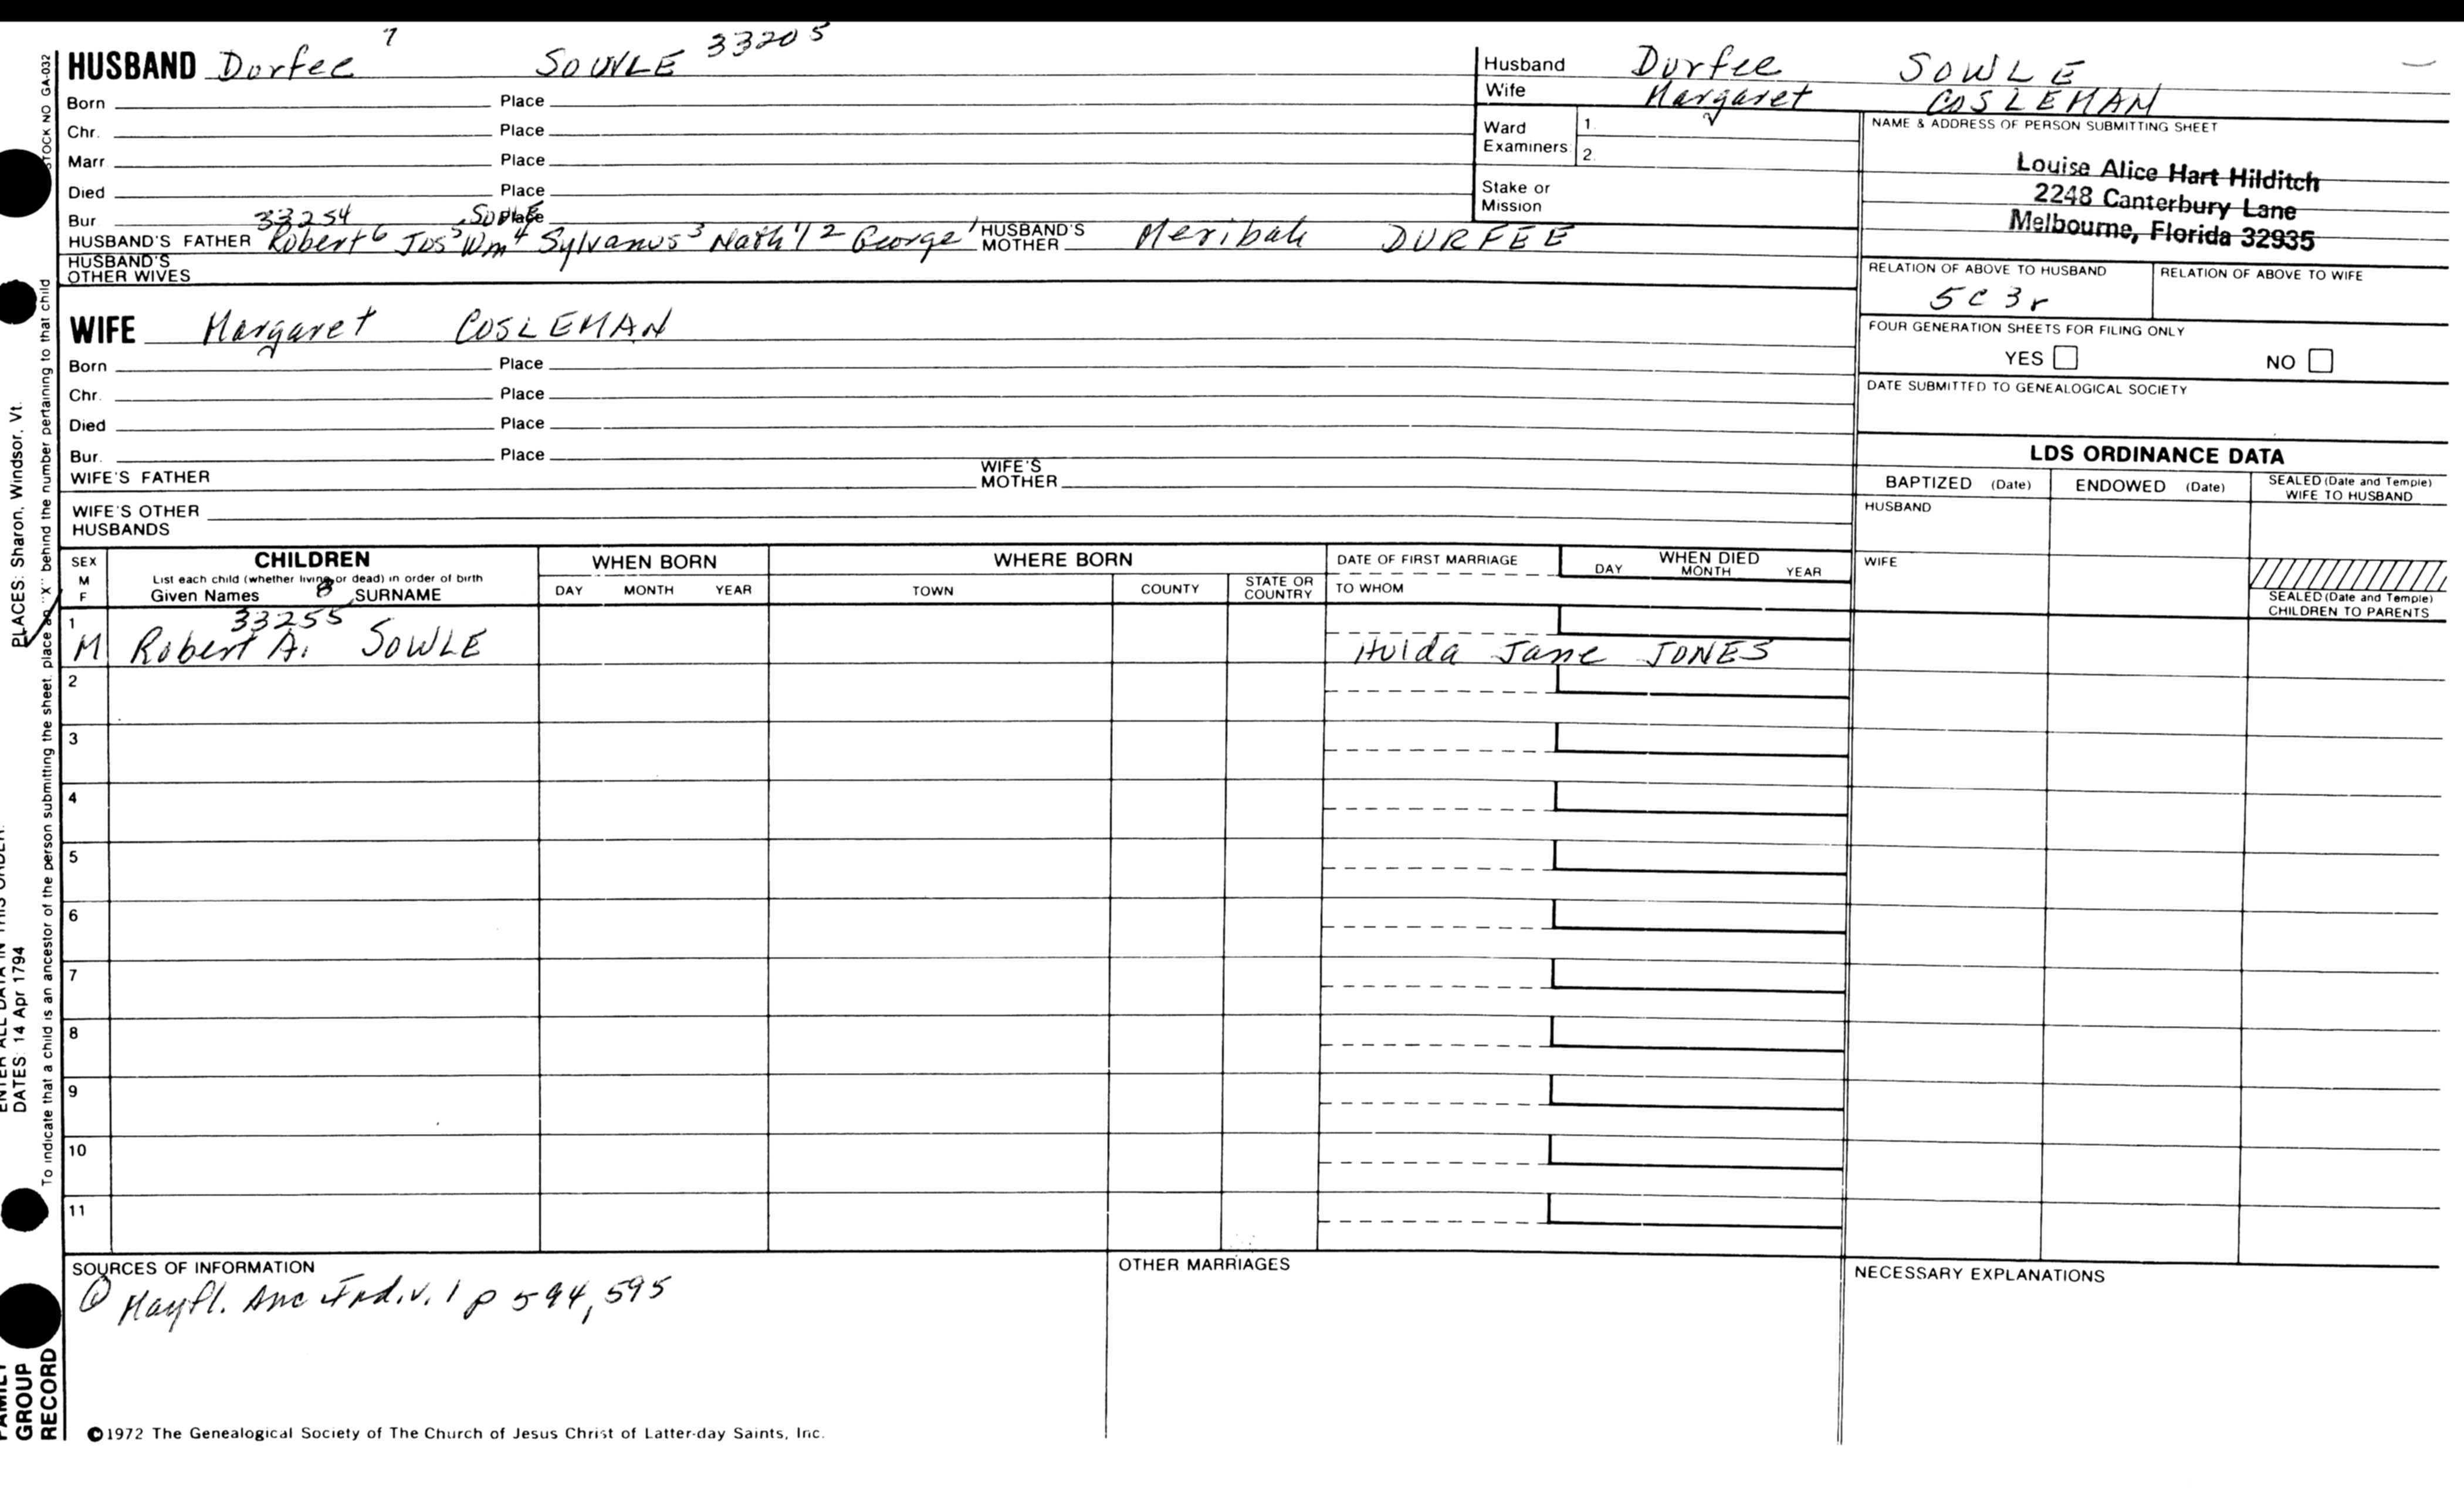 HUSBAND Durfee 7 SOWLE 33205
Born Place
Chr. Place
Marr. Place
Died Place
Bur. Place
33254 SOWLE
HUSBAND'S FATHER Robert6 Jos5 Wm4 Sylvanus3 Nath'l2 George1 HUSBAND'S MOTHER Meribah DURFEE
HUSBAND'S OTHER WIVES
WIFE Margaret COSLEMAN
Born Place
Chr. Place
Died Place
Bur. Place
WIFE'S FATHER WIFE'S MOTHER
WIFE'S OTHER HUSBANDS
Husband Durfee SOWLE
Wife Margaret COSLEMAN
Ward Examiners 1. 2.
Stake or Mission
NAME & ADDRESS OF PERSON SUBMITTING SHEET
Louise Alice Hart Hilditch
2248 Canterbury Lane
Melbourne, Florida 32935
RELATION OF ABOVE TO HUSBAND RELATION OF ABOVE TO WIFE
5C 3r
FOUR GENERATION SHEETS FOR FILING ONLY
YES NO
DATE SUBMITTED TO GENEALOGICAL SOCIETY
LDS ORDINANCE DATA
BAPTIZED (Date) ENDOWED (Date) SEALED (Date and Temple) WIFE TO HUSBAND
HUSBAND
WIFE
SEALED (Date and Temple) CHILDREN TO PARENTS
SEX M F
CHILDREN
List each child (whether living or dead) in order of birth
Given Names 8 SURNAME
WHEN BORN
DAY MONTH YEAR
WHERE BORN
TOWN COUNTY STATE OR COUNTRY
DATE OF FIRST MARRIAGE
TO WHOM
WHEN DIED
DAY MONTH YEAR
1
33255
M Robert A. SOWLE Hulda Jane JONES
2
3
4
5
6
7
8
9
10
11
SOURCES OF INFORMATION
Mayfl. Anc Ind. v. 1 p 594, 595
OTHER MARRIAGES
NECESSARY EXPLANATIONS
©1972 The Genealogical Society of The Church of Jesus Christ of Latter-day Saints, Inc.
STOCK NO GA-032
To indicate that a child is an ancestor of the person submitting the sheet, place an "X" behind the number pertaining to that child
PLACES: Sharon, Windsor, Vt.
ENTER ALL DATA IN THIS ORDER:
DATES: 14 Apr 1794
FAMILY
GROUP
RECORD